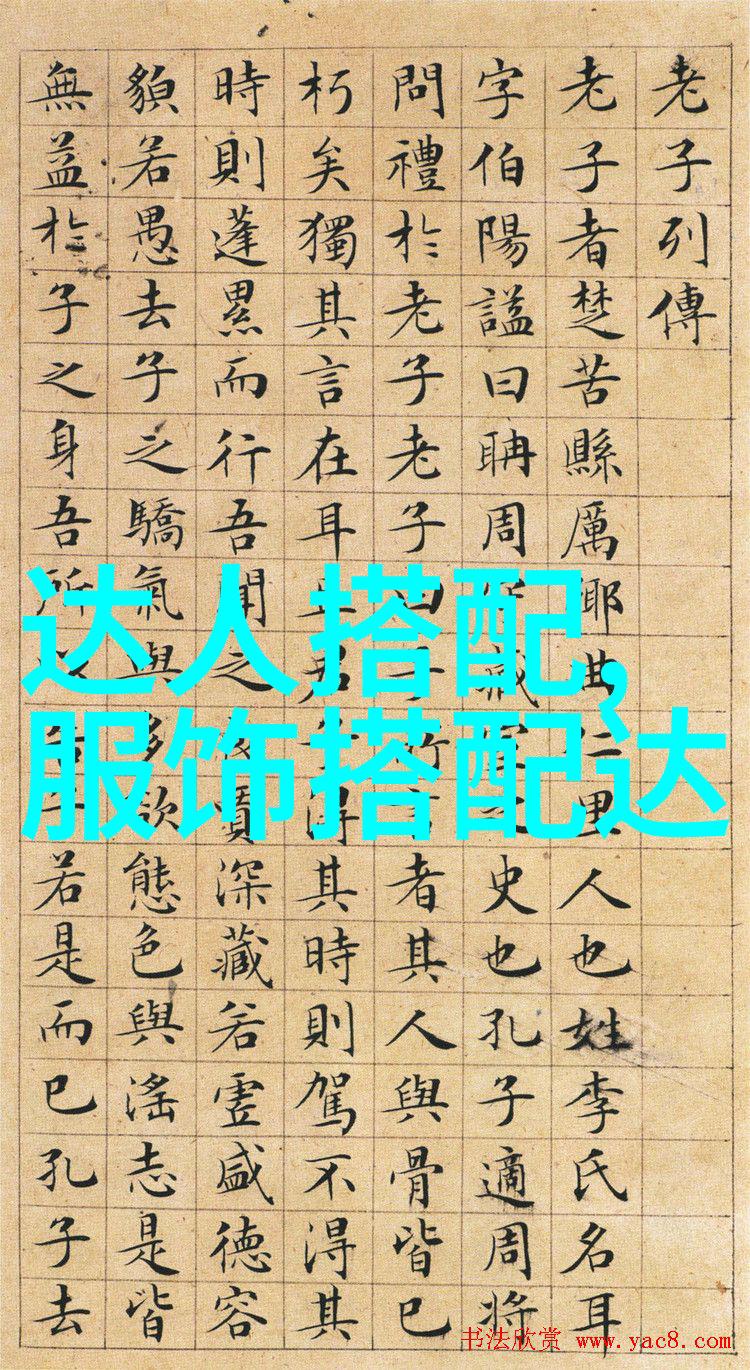 老子列傳
老子者楚苦縣厲鄉曲仁里人也姓李氏名耳
字伯陽謚曰聃周藏之史也孔子適周將
問禮於老子老子曰子所者其人與骨皆已
朽矣獨其言在耳且君子得其時則駕不得其
時則蓬累而行吾聞之賈深藏若虛盛德容
貌若愚去子之驕氣與多欲態色與淫志是皆
無益於子之身吾所告子若是而已孔子去
达人搭配,
服饰搭配达
书法欣赏 www.yac8.com